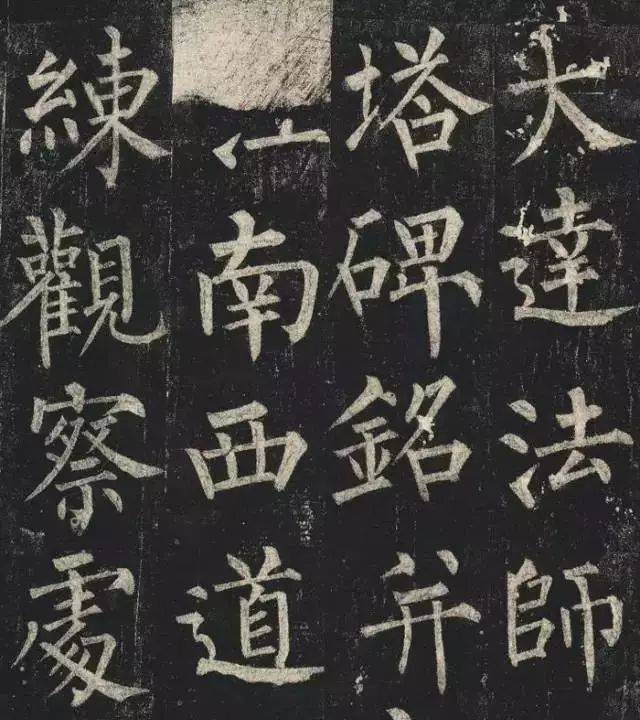 大達法師
塔碑銘并
南西道
練觀察處